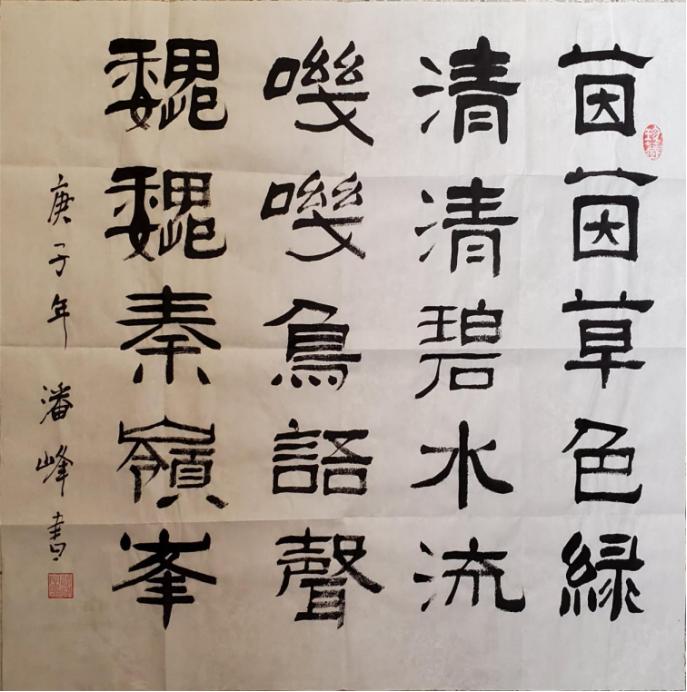 茵茵草色綠
清清碧水流
嘰嘰鳥語聲
魏魏秦嶺峯
庚子年 潘峰書